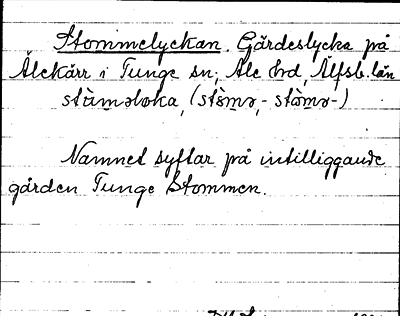 Stommelyckan. Gärdeslycka på
Älekärr i Tunge sn, Ale hd, Älfsb. län
Namnet syftar på intilliggande
gården Tunge Stommen.